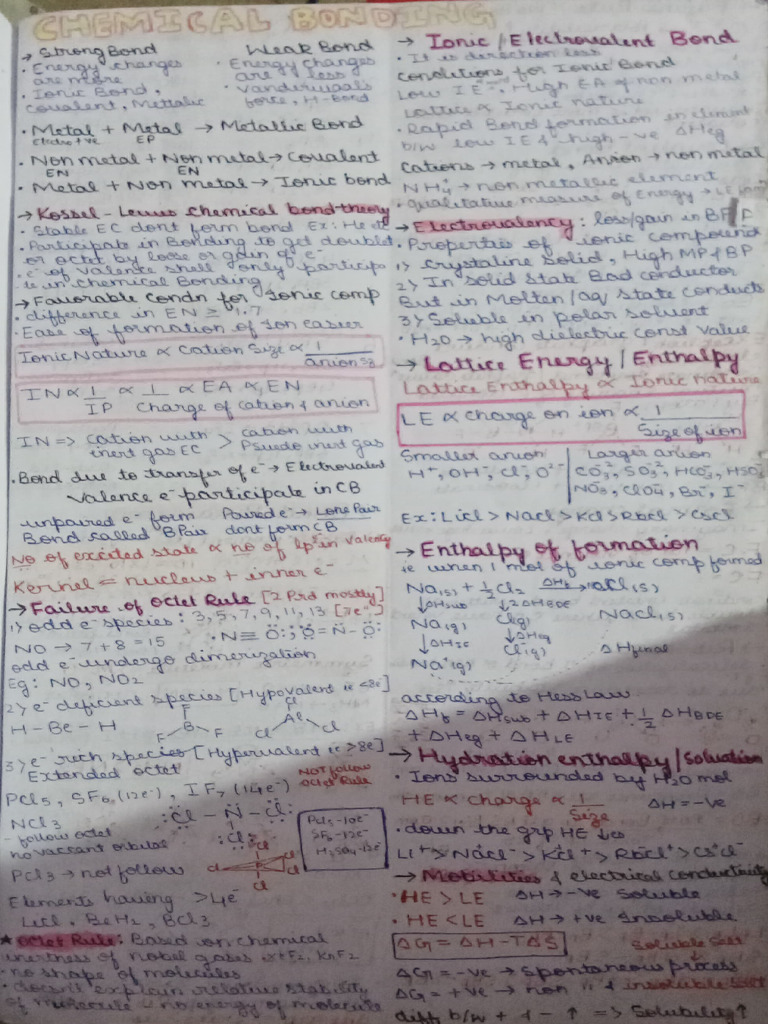 CHEMICAL BONDING
→ Strong Bond
• Energy changes
are more
• Ionic Bond,
Covalent, Mettalic
Weak Bond
• Energy changes
are less
• Vanderwaal's
force, H-Bond
• Metal + Metal → Metallic Bond
Electro +ve EP
• Non metal + Non metal → Covalent
EN EN
• Metal + Non metal → Ionic bond
→ Kossel-Lewis chemical bond theory
• Stable EC dont form bond Ex: He etc
• Participate in Bonding to get doublet
or octet by loose or gain of e⁻
• e⁻ of valence shell only particip
ie in chemical Bonding
→ Favorable condn for Ionic comp
• difference in EN ≥ 1.7
• Ease of formation of Ion easier
Ionic Nature ∝ Cation Size ∝ 1/anion sz
IN ∝ 1/IP ∝ 1/Charge of cation & anion ∝ EA ∝ EN
IN => cation with inert gas EC > cation with Psuedo inert gas
• Bond due to transfer of e⁻ → Electrovalent
Valence e⁻ participate in CB
unpaired e⁻ form Paired e⁻ → Lone Pair
Bond called BPair dont form CB
No of excited state ∝ no of lps in valency
Kernel = nucleus + inner e⁻
→ Failure of Octet Rule [2 Prd mostly]
1) odd e⁻ species: 3, 5, 7, 9, 11, 13 [7e⁻]
NO → 7 + 8 = 15 •N≡O: :O=N-O:
odd e⁻ undergo dimerization
Eg: NO, NO2
2) e⁻ deficient species [Hypovalent ie <8e]
H - Be - H
F
B
F F
Cl
Al
Cl Cl
3) e⁻ rich species [Hypervalent ie >8e]
Extended octet
NOT follow
octet Rule
PCl5, SF6 (12e⁻), IF7 (14e⁻)
NCl3 :Cl - N - Cl:
- follow octet :Cl:
no vaccant orbital
PCl5 - 10e⁻
SF6 - 12e⁻
H2SO4 - 12e⁻
PCl3 → not follow
Cl Cl Cl
Elements having >4e⁻
LiCl, BeH2, BCl3
★ Octet Rule: Based on chemical
inertness of nobel gases XeF2, KrF2
• no shape of molecules
• doesn't explain relative stability
of molecule - no energy of molecule
→ Ionic / Electrovalent Bond
• It is direction less
Conditions for Ionic Bond
Low IE, High EA of non metal
Lattice ∝ Ionic nature
• Rapid Bond formation in element
b/w low IE & high -ve ΔHeg
Cations → metal, Anion → non metal
NH4⁺ → non metallic element
• qualitative measure of Energy → LE
→ Electrovalency: loss/gain in BF
• Properties of ionic compound
1) Crystaline solid, High MP & BP
2) In solid state Bad conductor
But in Molten/aq state conducts
3) Soluble in polar solvent
• H2O → high dielectric const value
→ Lattice Energy / Enthalpy
Lattice Enthalpy ∝ Ionic nature
LE ∝ charge on ion ∝ 1/Size of ion
Smaller anion Larger anion
H⁺, OH⁻, Cl⁻, O²⁻ CO3²⁻, SO4²⁻, HCO3⁻, HSO
NO3⁻, ClO4⁻, Br⁻, I⁻
Ex: LiCl > NaCl > KCl > RbCl > CsCl
→ Enthalpy of formation
ie when 1 mol of ionic comp formed
Na(s) + ½Cl2 ΔHf → NaCl(s)
↓ΔHsub ↓½ΔHBDE
Na(g) Cl(g) NaCl(s)
↓ΔHIE ↓ΔHeg
Na⁺(g) Cl⁻(g) ΔHfinal
according to Hess Law
ΔHf = ΔHsub + ΔHIE + ½ ΔHBDE
+ ΔHeg + ΔHLE
→ Hydration enthalpy / Solvation
• Ions surrounded by H2O mol
HE ∝ charge ∝ 1/Size ΔH = -ve
• down the grp HE ↓es
Li⁺ > NaCl⁻ > KCl⁺ > RbCl⁺ > Cs⁺Cl⁻
→ Mobilities & electrical conductivity
• HE > LE ΔH → -ve Soluble
• HE < LE ΔH → +ve Insoluble
ΔG = ΔH - TΔS Soluble Salt
ΔG = -ve → spontaneous process
ΔG = +ve → non " & insoluble salt
diff b/w + & - ↑ => Solubility ↑